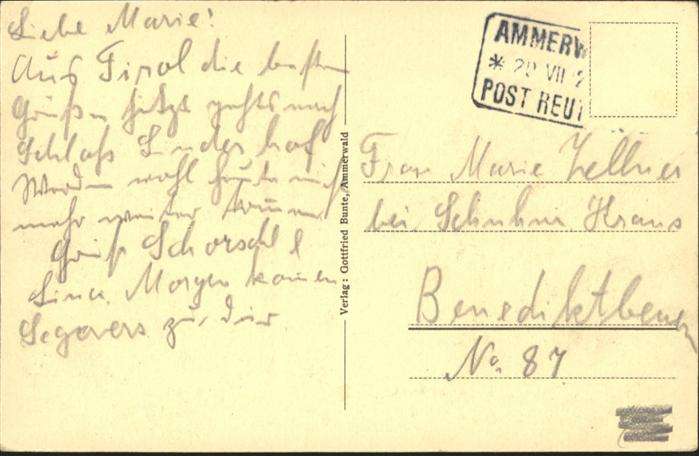 Liebe Marie!
Aus Tirol die besten
Grüße jetzt gehts nach
Schloß Linderhof
Werden wohl heute nicht
mehr weiter kommen
Gruß Schorschl
Lina. Morgen kommen
zu Dir
Verlag: Gottfried Bunte, Ammerwald
AMMERW
* 20 VII 2
POST REUT
Frau Marie Zellner
bei Kraus
Benediktbeuern
No 87